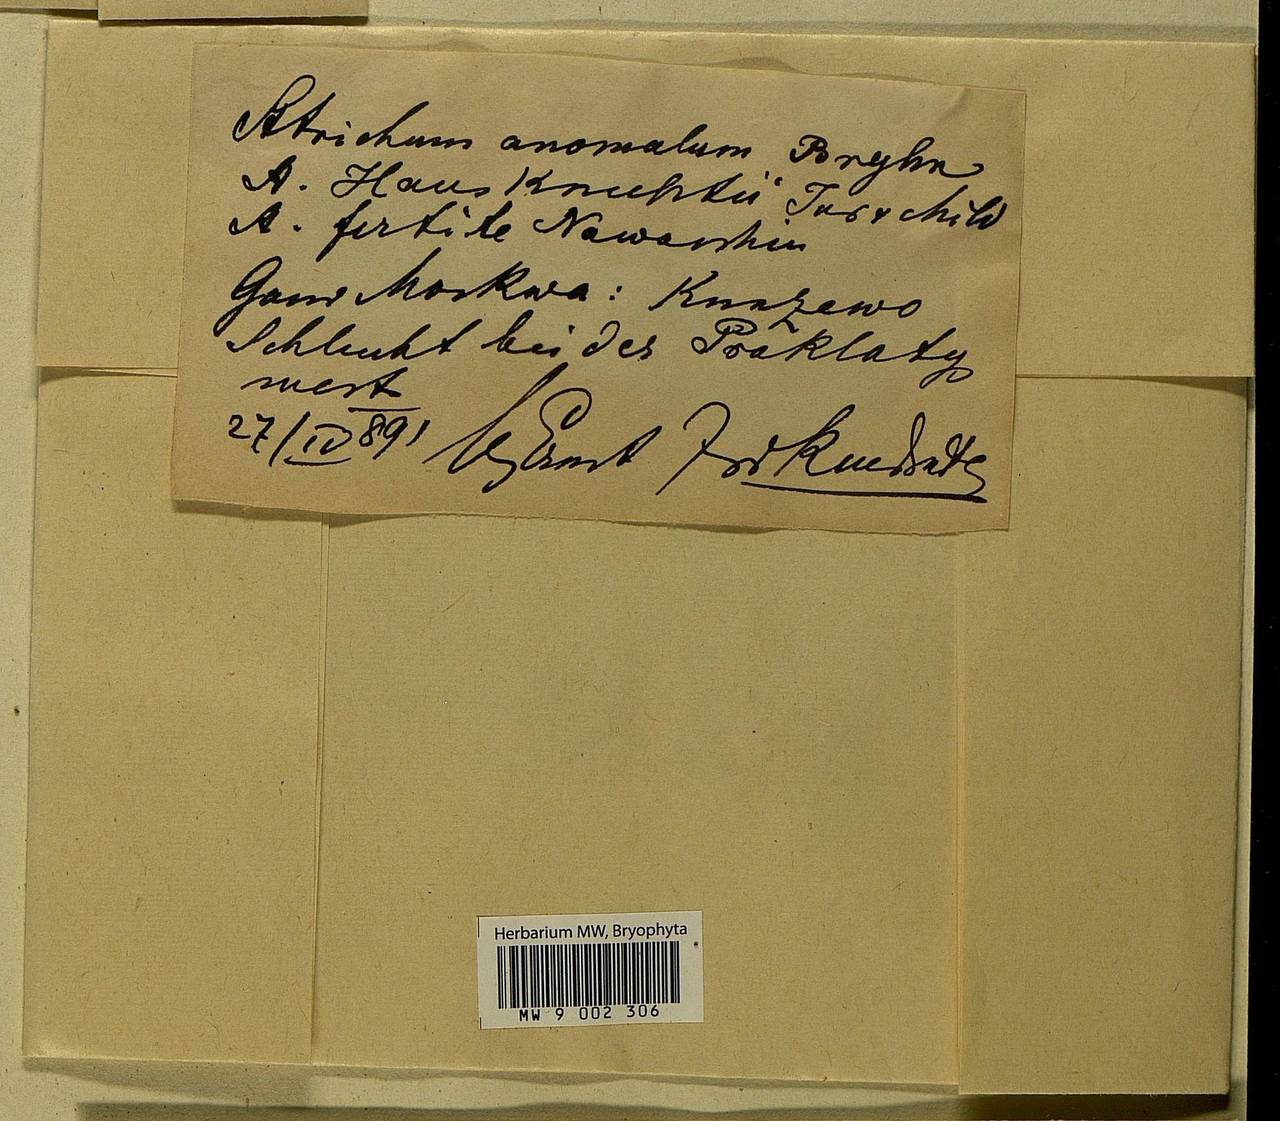 Atrichum anomalum Bryhn
A. Hausknechtii Jur & Mild
A. fertile Nawaschin
Gouv Moskwa: Kunzewo
Schlucht bei der Proklaty
mest
27/IV 891 Ernst
Herbarium MW, Bryophyta
MW 9 002 306